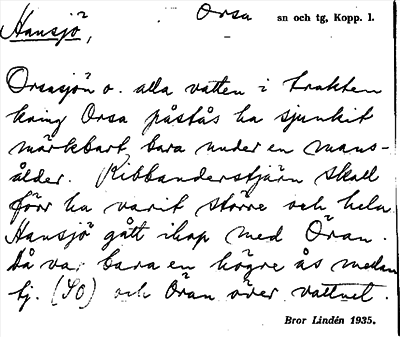 Hansjö, Orsa sn och tg, Kopp. l.
Orsasjön o. alla vatten i trakten
kring Orsa påstås ha sjunkit
märkbart bara under en mans-
ålder. Kibbanderstjärn skall
förr ha varit större och hela
Hansjö gått ihop med Öran.
Då var bara en högre ås medan
tj. (SO) och Öran över vattnet.
Bror Lindén 1935.